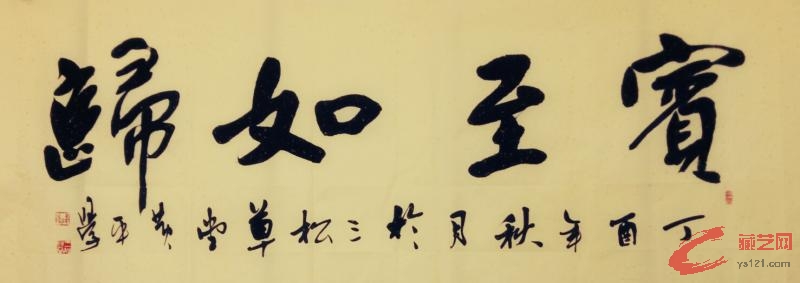 賓至如歸
丁酉年秋月於三松草堂黄平學
藏艺网
ys121.com